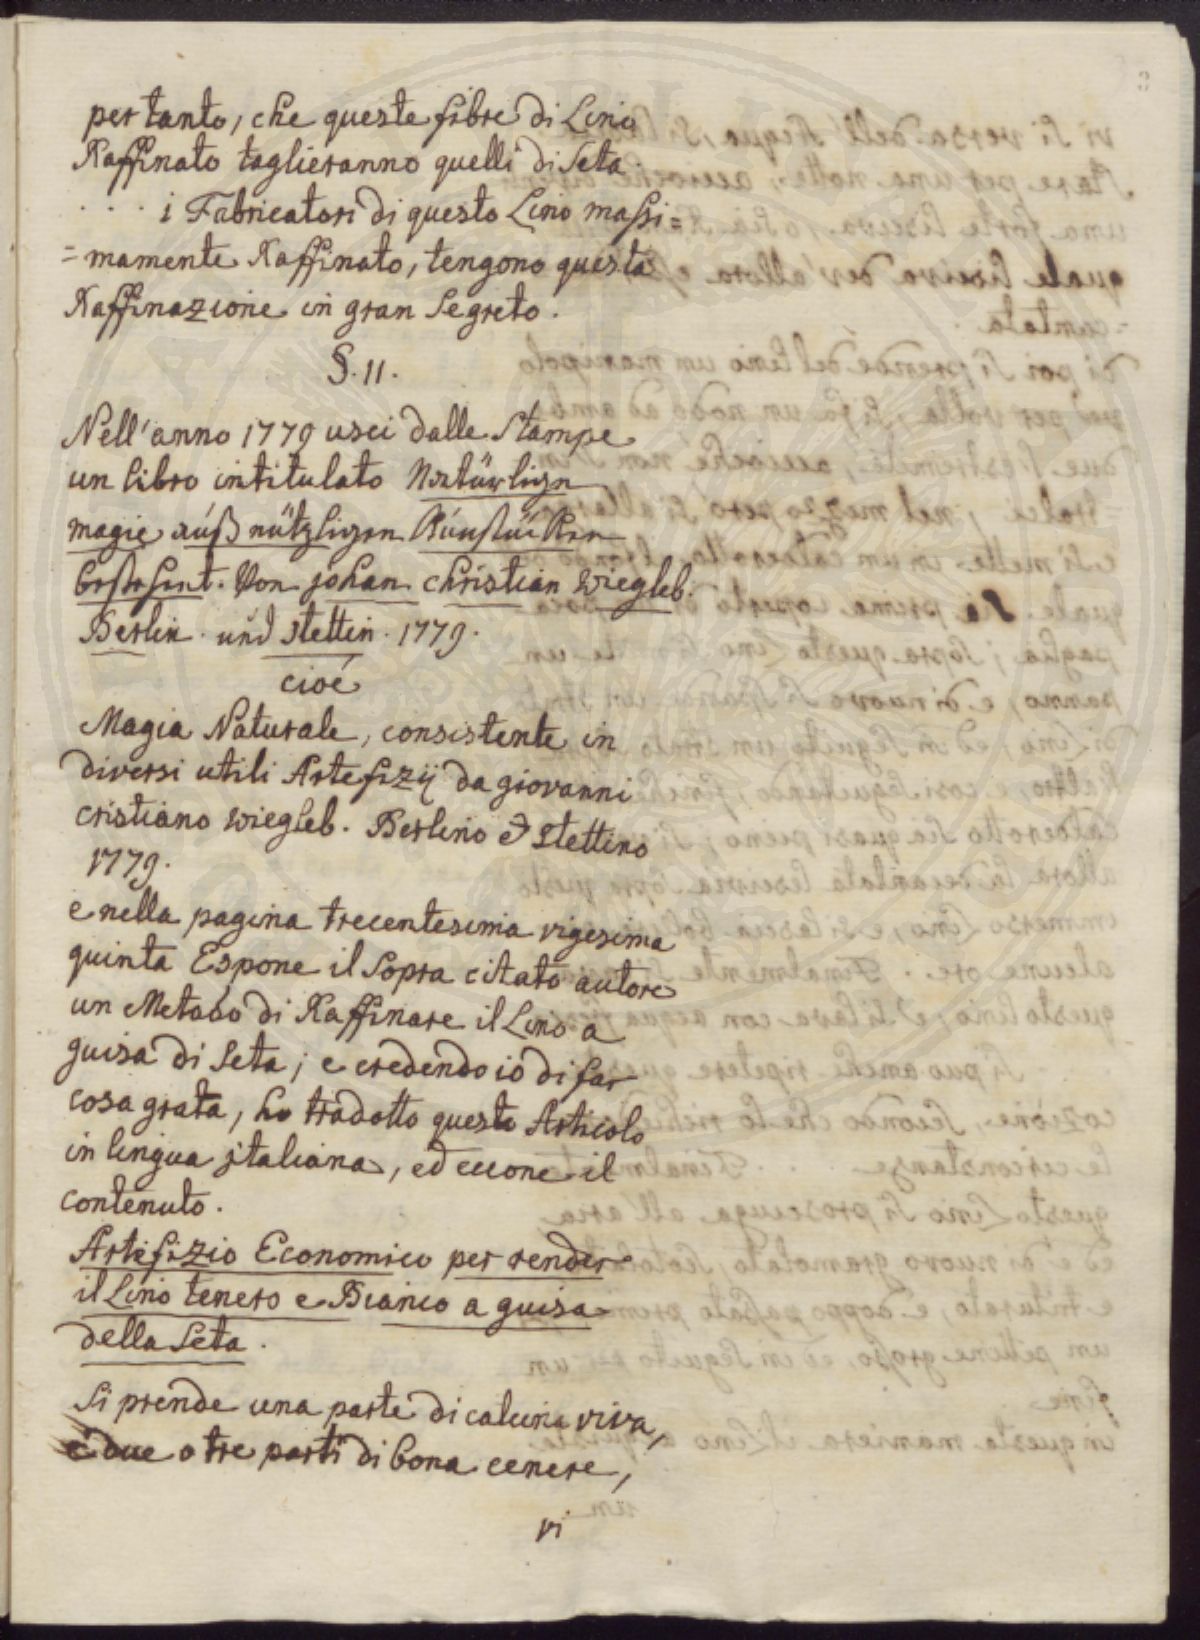 per tanto, che queste fibre di Lino
Raffinato taglieranno quelli di Seta.
. . . . i Fabricatori di questo Lino massi=
=mamente Raffinato, tengono questa
Raffinazione in gran Segreto.
§. 11.
Nell'anno 1779 usci dalle Stampe
un libro intitulato Natürlizn
magie auß nützlizen Künstüken
bestehent. Von johan christian wiegleb.
Berlin und stettin. 1779.
cioé
Magia Naturale, consistente in
diversi utili Artefizij da giovanni
cristiano wiegleb. Berlino & stettino
1779.
e nella pagina trecentesima vigesima
quinta Espone il Sopra citato autore
un Metodo di Raffinare il Lino a
guisa di Seta; e credendo io di far
cosa grata, ho tradotto questo Articolo
in lingua jtaliana, ed eccone il
contenuto.
Artefizio Economico per render
il Lino tenero e Bianco a guisa
della Seta.
Si prende una parte di calcina viva,
e due o tre parti di bona cenere,
vi